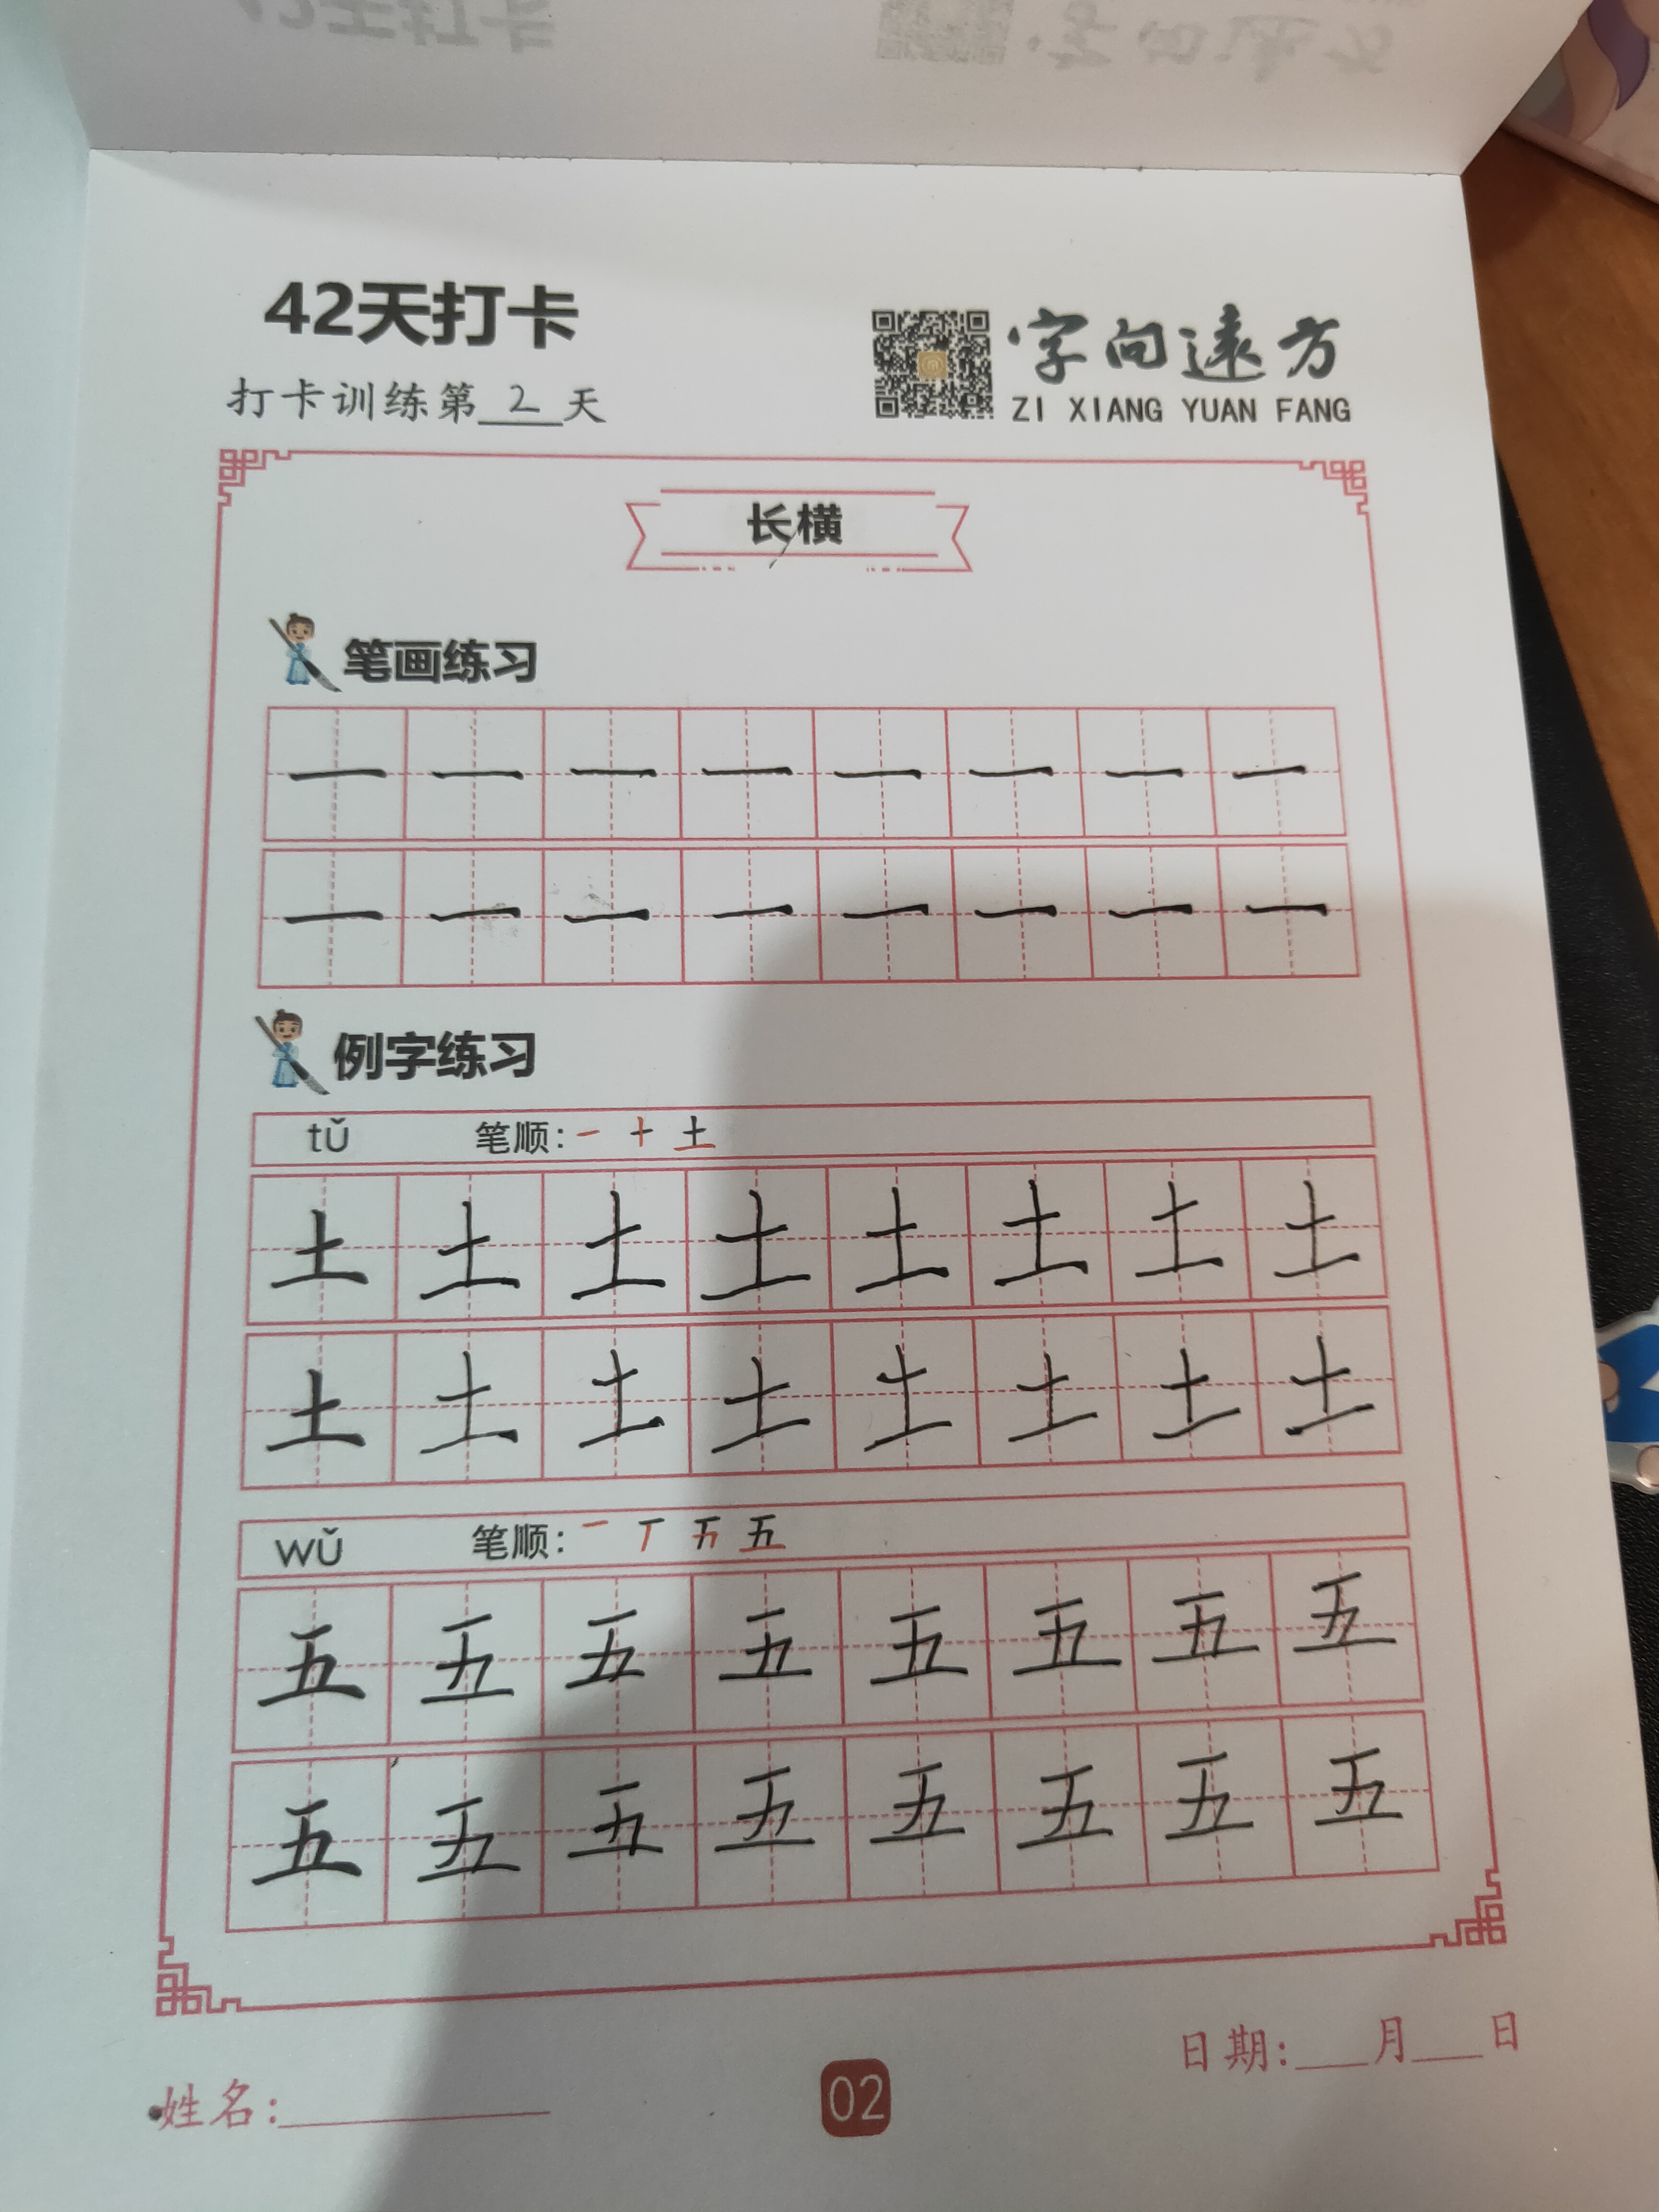 42天打卡
字向远方
打卡训练第2天
ZI XIANG YUAN FANG
长横
笔画练习
一 一 一 一 一 一 一 一
一 一 一 一 一 一 一 一
例字练习
tǔ 笔顺: 一 十 土
土 土 土 土 土 土 土 土
土 土 土 土 土 土 土 土
wǔ 笔顺: 一 丁 五
五 五 五 五 五 五 五 五
五 五 五 五 五 五 五 五
日期:___月___日
姓名:
02